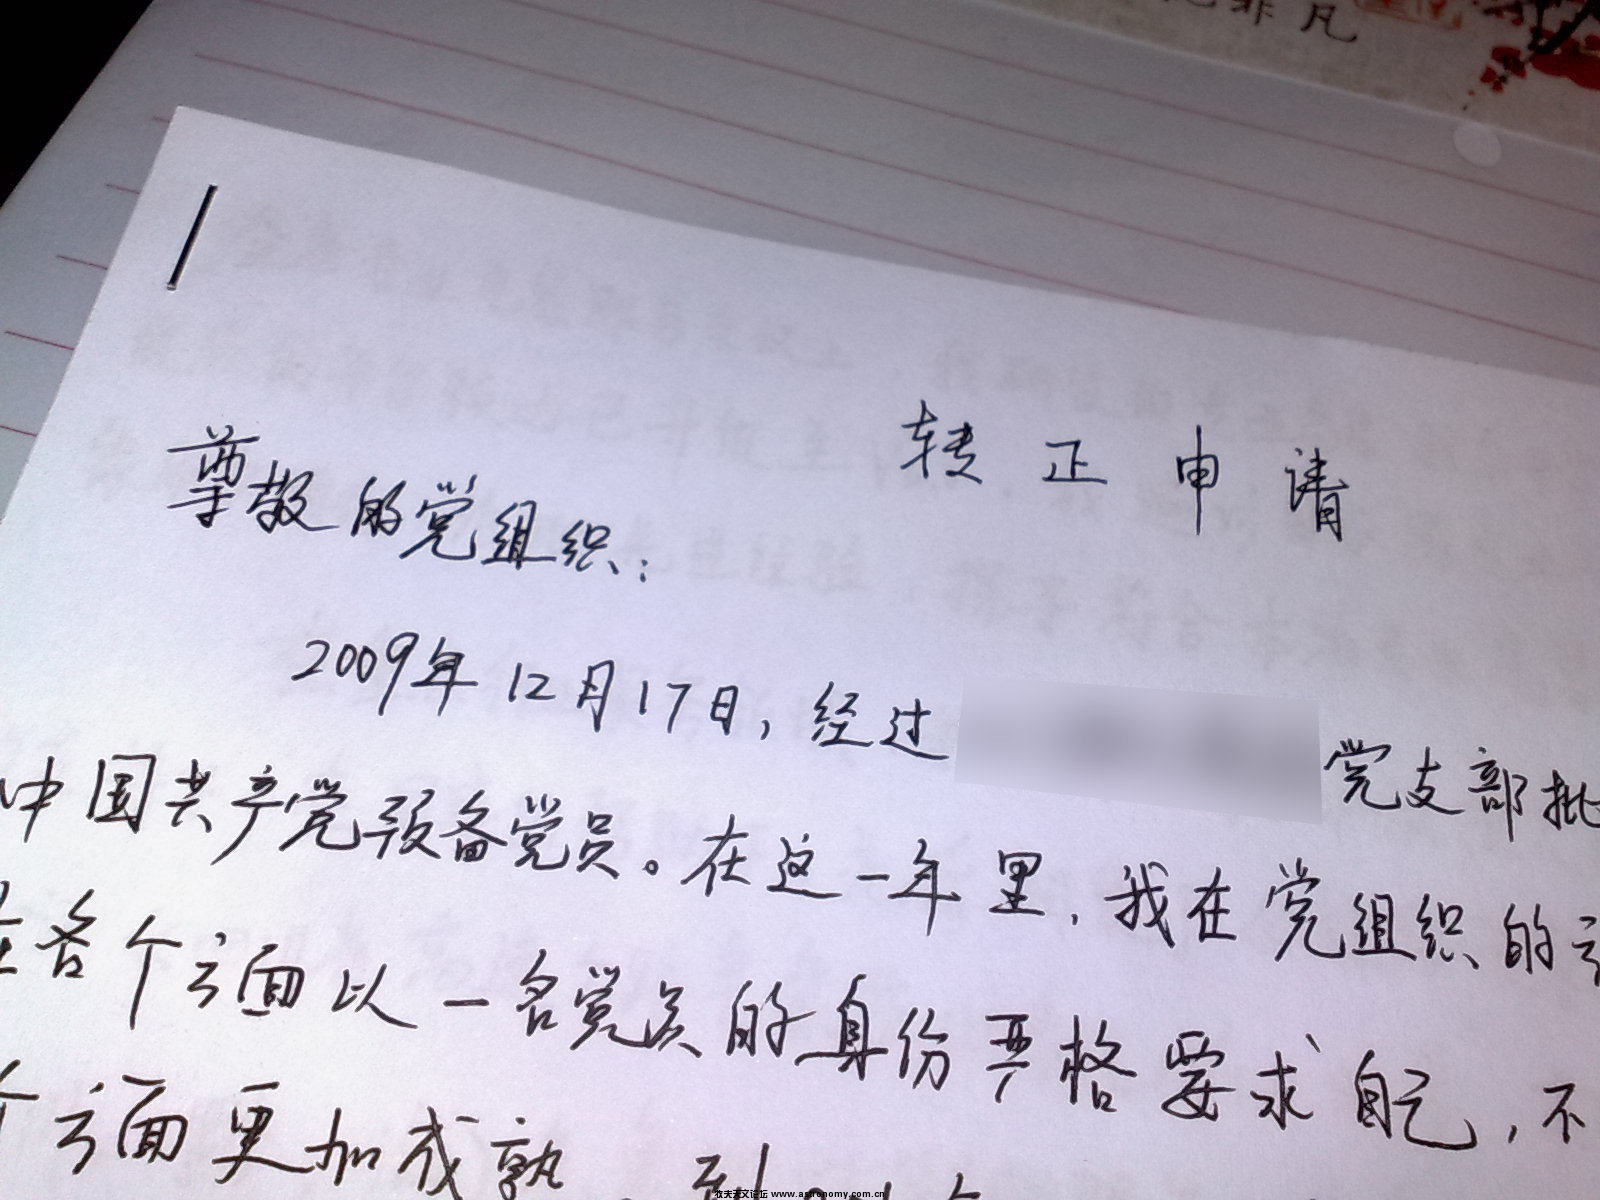 非凡
转正申请
尊敬的党组织:
2009年12月17日，经过
党支部批
中国共产党预备党员。在这一年里，我在党组织的
在各个方面以一名党员的身份严格要求自己，不
个方面更加成熟
牧夫天文论坛 www.astronomy.com.cn